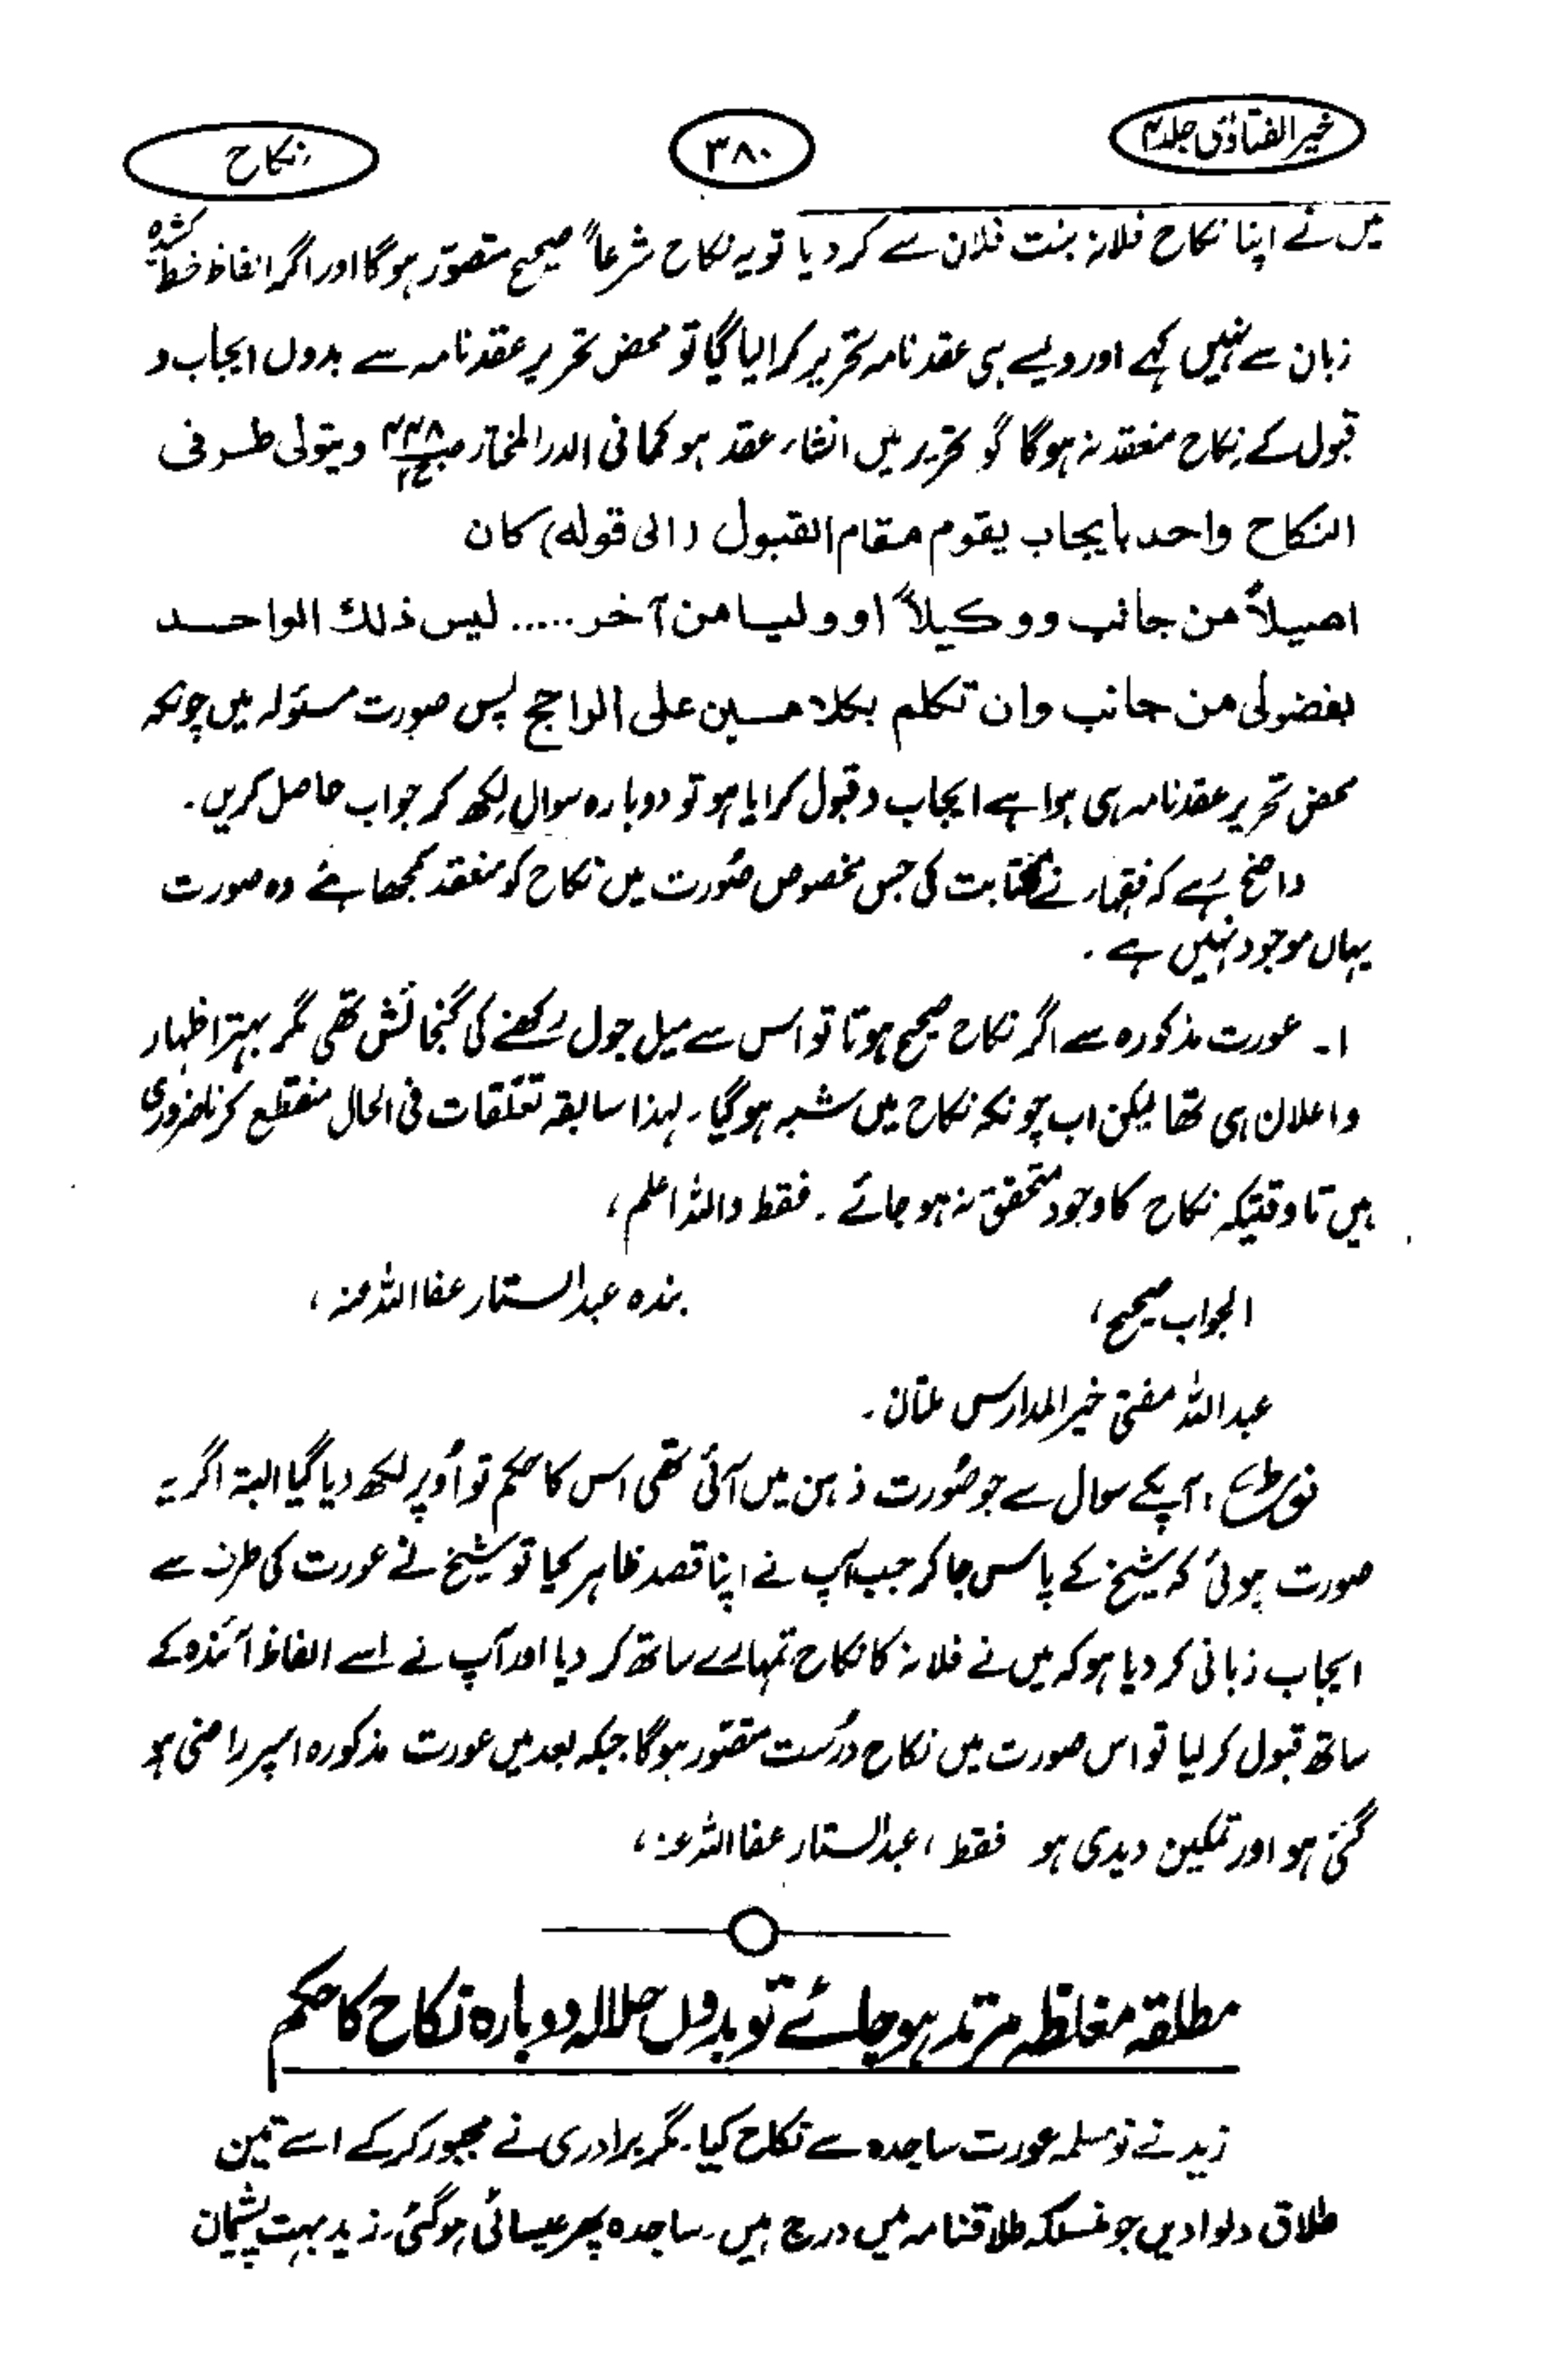 خیر الفتاوٰی جلد ۴
۳۸۰
نکاح
میں نے اپنا نکاح فلانہ بنت فلان سے کر دیا تو یہ نکاح شرعاً صحیح متصوّر ہوگا اور اگر الفاظ خط کشیدہ
زبان سے نہیں کہے اور ویسے ہی عقد نامہ تحریر کرا لیا گیا تو محض تحریر عقد نامہ سے بدوں ایجاب و
قبول کے نکاح منعقد نہ ہوگا گو تحریر میں انشاء عقد ہو کما فی الدر المختار ویتولی طرفی
النکاح واحد بایجاب یقوم مقام القبول (الی قولہ) کان
اصیلاً من جانب ووکیلاً او ولیا من آخر ..... لیس ذلک الواحد
بفضولی من جانب وان تکلم بکلامین علی الراجح پس صورت مسئولہ میں چونکہ
محض تحریر عقد نامہ ہی ہوا ہے ایجاب و قبول کرایا ہو تو دوبارہ سوال لکھ کر جواب حاصل کریں۔
واضح رہے کہ فقہاء نے کتابت کی جس مخصوص صُورت میں نکاح کو منعقد سمجھا ہے وہ صورت
یہاں موجود نہیں ہے۔
۱۔ عورت مذکورہ سے اگر نکاح صحیح ہوتا تو اس سے میل جول رکھنے کی گنجائش تھی مگر بہتر اظہار
و اعلان ہی تھا لیکن اب چونکہ نکاح میں شبہ ہوگیا۔ لہذا سابقہ تعلقات فی الحال منقطع کرنا ضروری
ہیں تا وقتیکہ نکاح کا وجود متحقق نہ ہو جائے۔ فقط واللہ اعلم،
بندہ عبد الستار عفا اللہ عنہ،
الجواب صحیح،
عبد اللہ مفتی خیر المدارس ملتان۔
نوٹ، آپکے سوال سے جو صُورت ذہن میں آئی تھی اس کا حکم تو اُوپر لکھ دیا گیا البتہ اگر یہ
صورت ہوئی کہ شیخ کے پاس جا کر جب آپ نے اپنا قصد ظاہر کیا تو شیخ نے عورت کی طرف سے
ایجاب زبانی کر دیا ہو کہ میں نے فلانہ کا نکاح تمہارے ساتھ کر دیا اور آپ نے اسے الفاظ آئندہ کے
ساتھ قبول کر لیا تو اس صورت میں نکاح درُست متصور ہوگا جبکہ بعد میں عورت مذکورہ اسپر راضی ہو
گئی ہو اور تمکین دیدی ہو فقط، عبد الستار عفا اللہ عنہ،
مطلقہ مغلظہ مرتد ہو جائے تو بدوں حلالہ دوبارہ نکاح کا حکم
زید نے نومسلمہ عورت ساجدہ سے نکاح کیا۔ مگر برادری نے مجبور کر کے اسے تین
طلاق دلوادیں جو منسلکہ طلاقنامہ میں درج ہیں۔ ساجدہ پھر عیسائی ہوگئی۔ زید بہت پشیمان